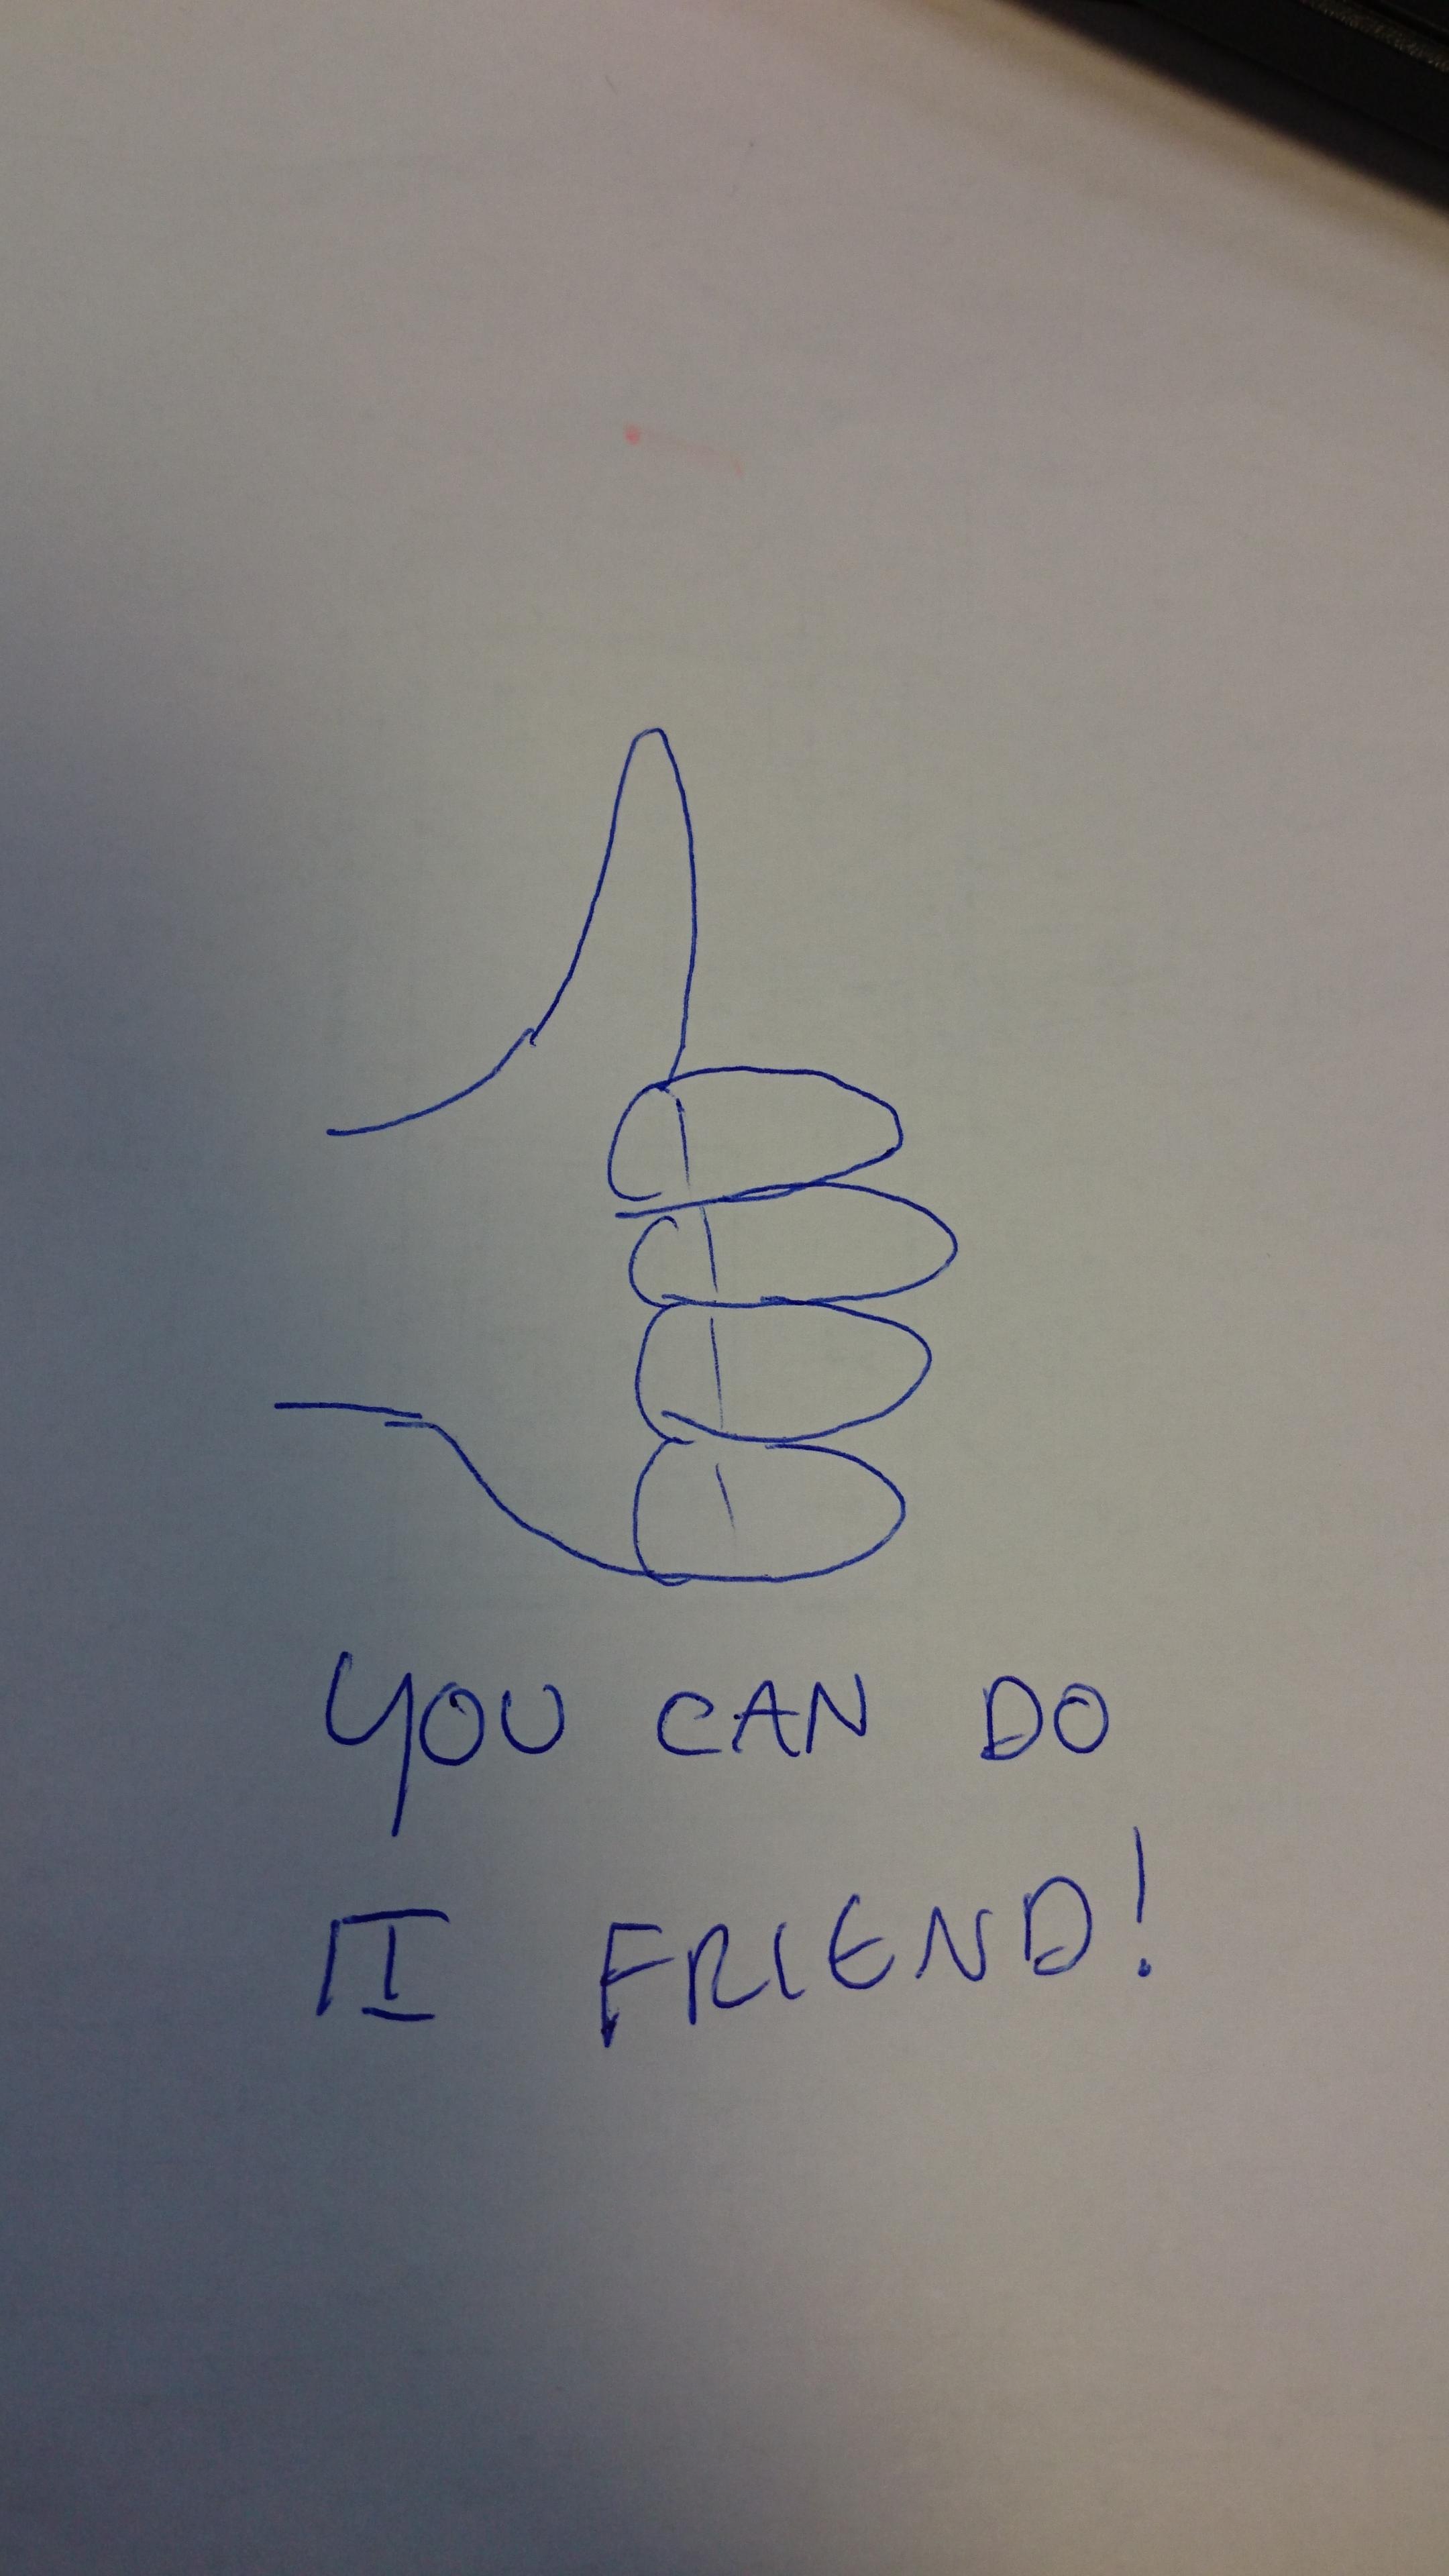 YOU CAN DO
IT FRIEND!